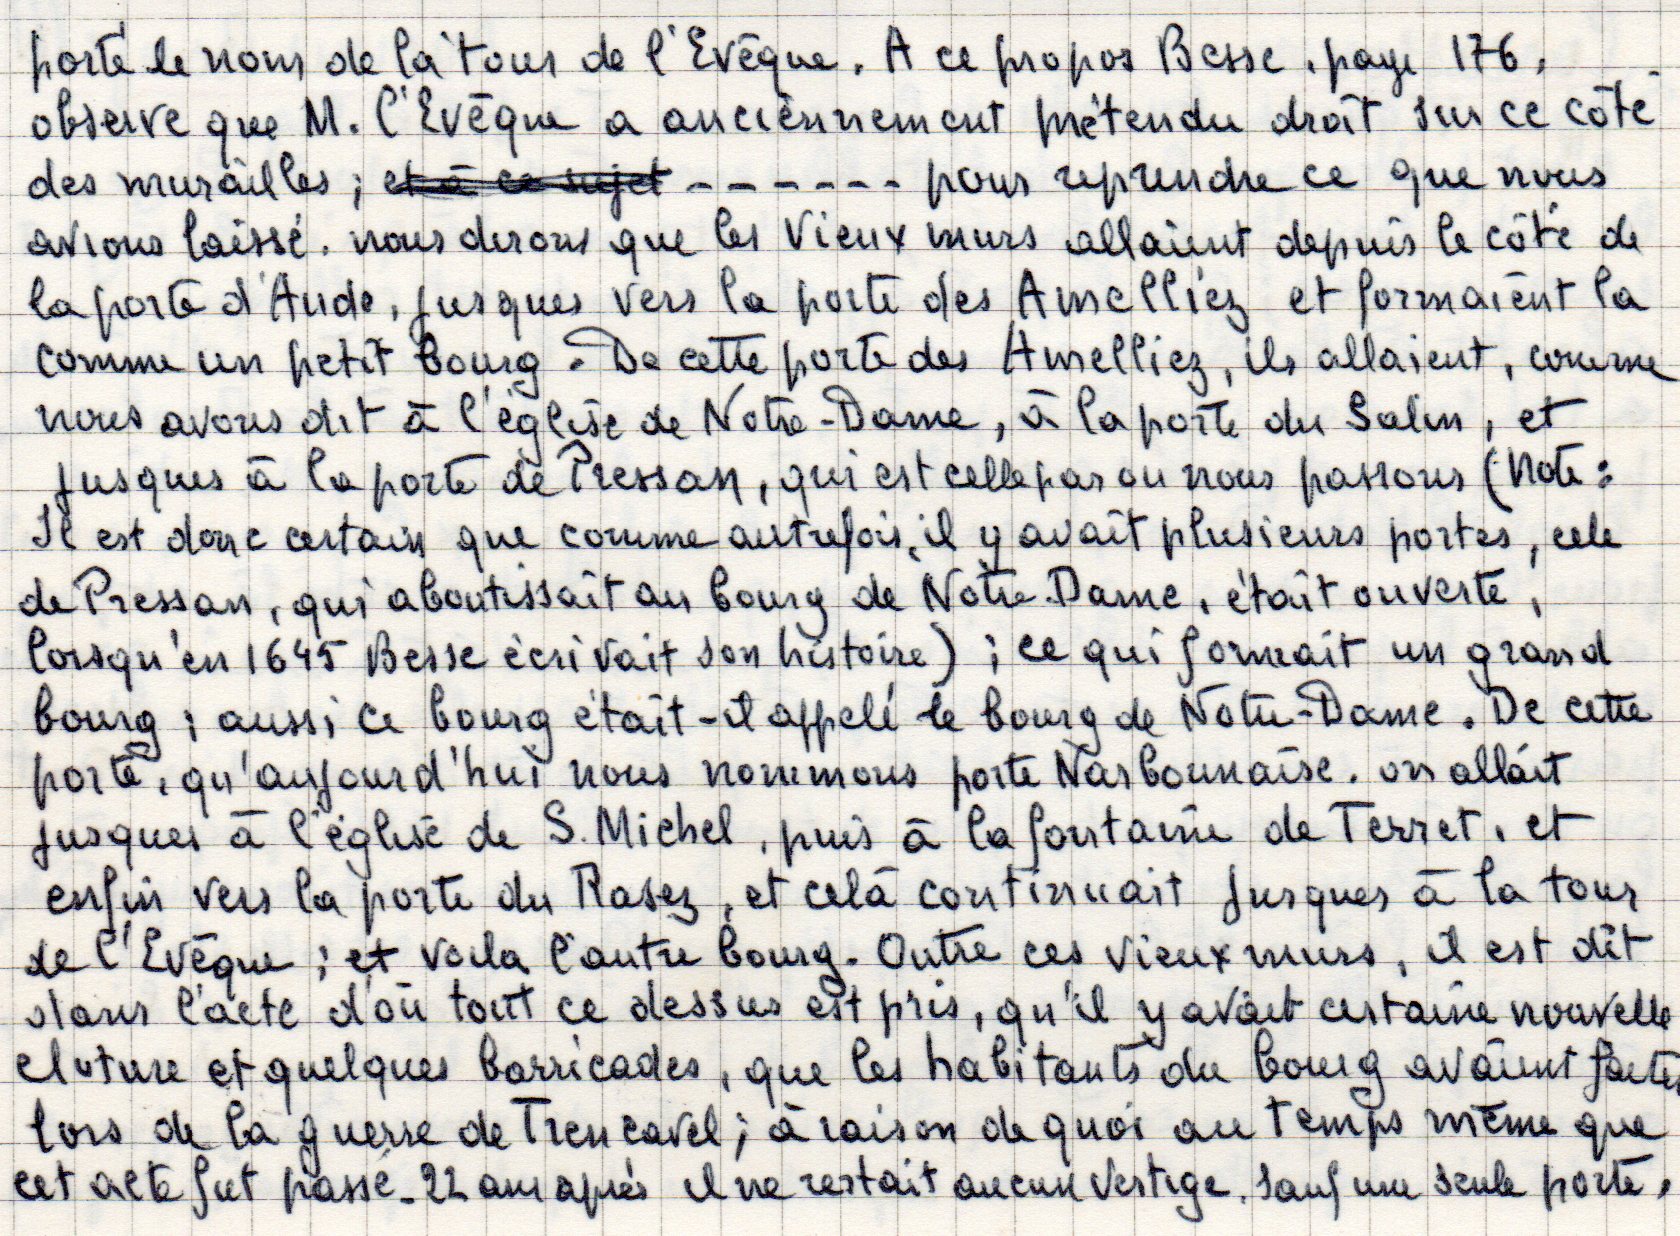 porté le nom de la tour de l'Evêque. A ce propos Besse, page 176,
observe que M. l'Evêque a anciènnement prétendu droit sur ce côté
des murailles ; et à ce sujet - - - - - - - pour reprendre ce que nous
avions laissé. nous dirons que les vieux murs allaient depuis le côté de
la porte d'Aude, jusques vers la porte des Amelliez et formaient la
comme un petit bourg. De cette porte des Amelliez, ils allaient, comme
nous avons dit à l'église de Notre-Dame, à la porte du Salin, et
jusques à la porte de Pressan, qui est celle par ou nous passons (Note :
Il est donc certain que comme autrefois, il y avait plusieurs portes, cele
de Pressan, qui aboutissait au bourg de Notre-Dame, était ouverte,
lorsqu'en 1645 Besse écrivait son histoire) ; ce qui formait un grand
bourg ; aussi ce bourg était-il appelé le bourg de Notre-Dame. De cette
porte, qu'aujourd'hui nous nommons porte Narbonnaise. on allait
jusques à l'église de S. Michel, puis à la fontaine de Terret, et
enfin vers la porte du Rasez, et celà continuait jusques à la tour
de l'Evêque ; et voila l'autre bourg. Outre ces vieux murs, il est dit
dans l'acte d'où tout ce dessus est pris, qu'il y avait certaine nouvelle
cloture et quelques barricades, que les habitants du bourg avaient faites
lors de la guerre de Trencavel ; à raison de quoi au temps même que
cet acte fut passé - 22 ans après il ne restait aucun vestige, sauf une seule porte,